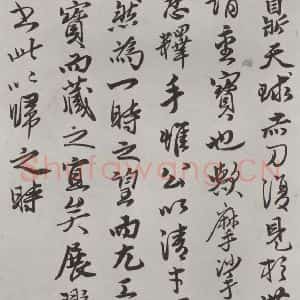 天球赤刀復見於世
謂重寶也歟摩挲
忍釋手惟公以清才
然為一時之望而尤工
寶而藏之宜矣展
書此以歸之時
Shufawang.CN